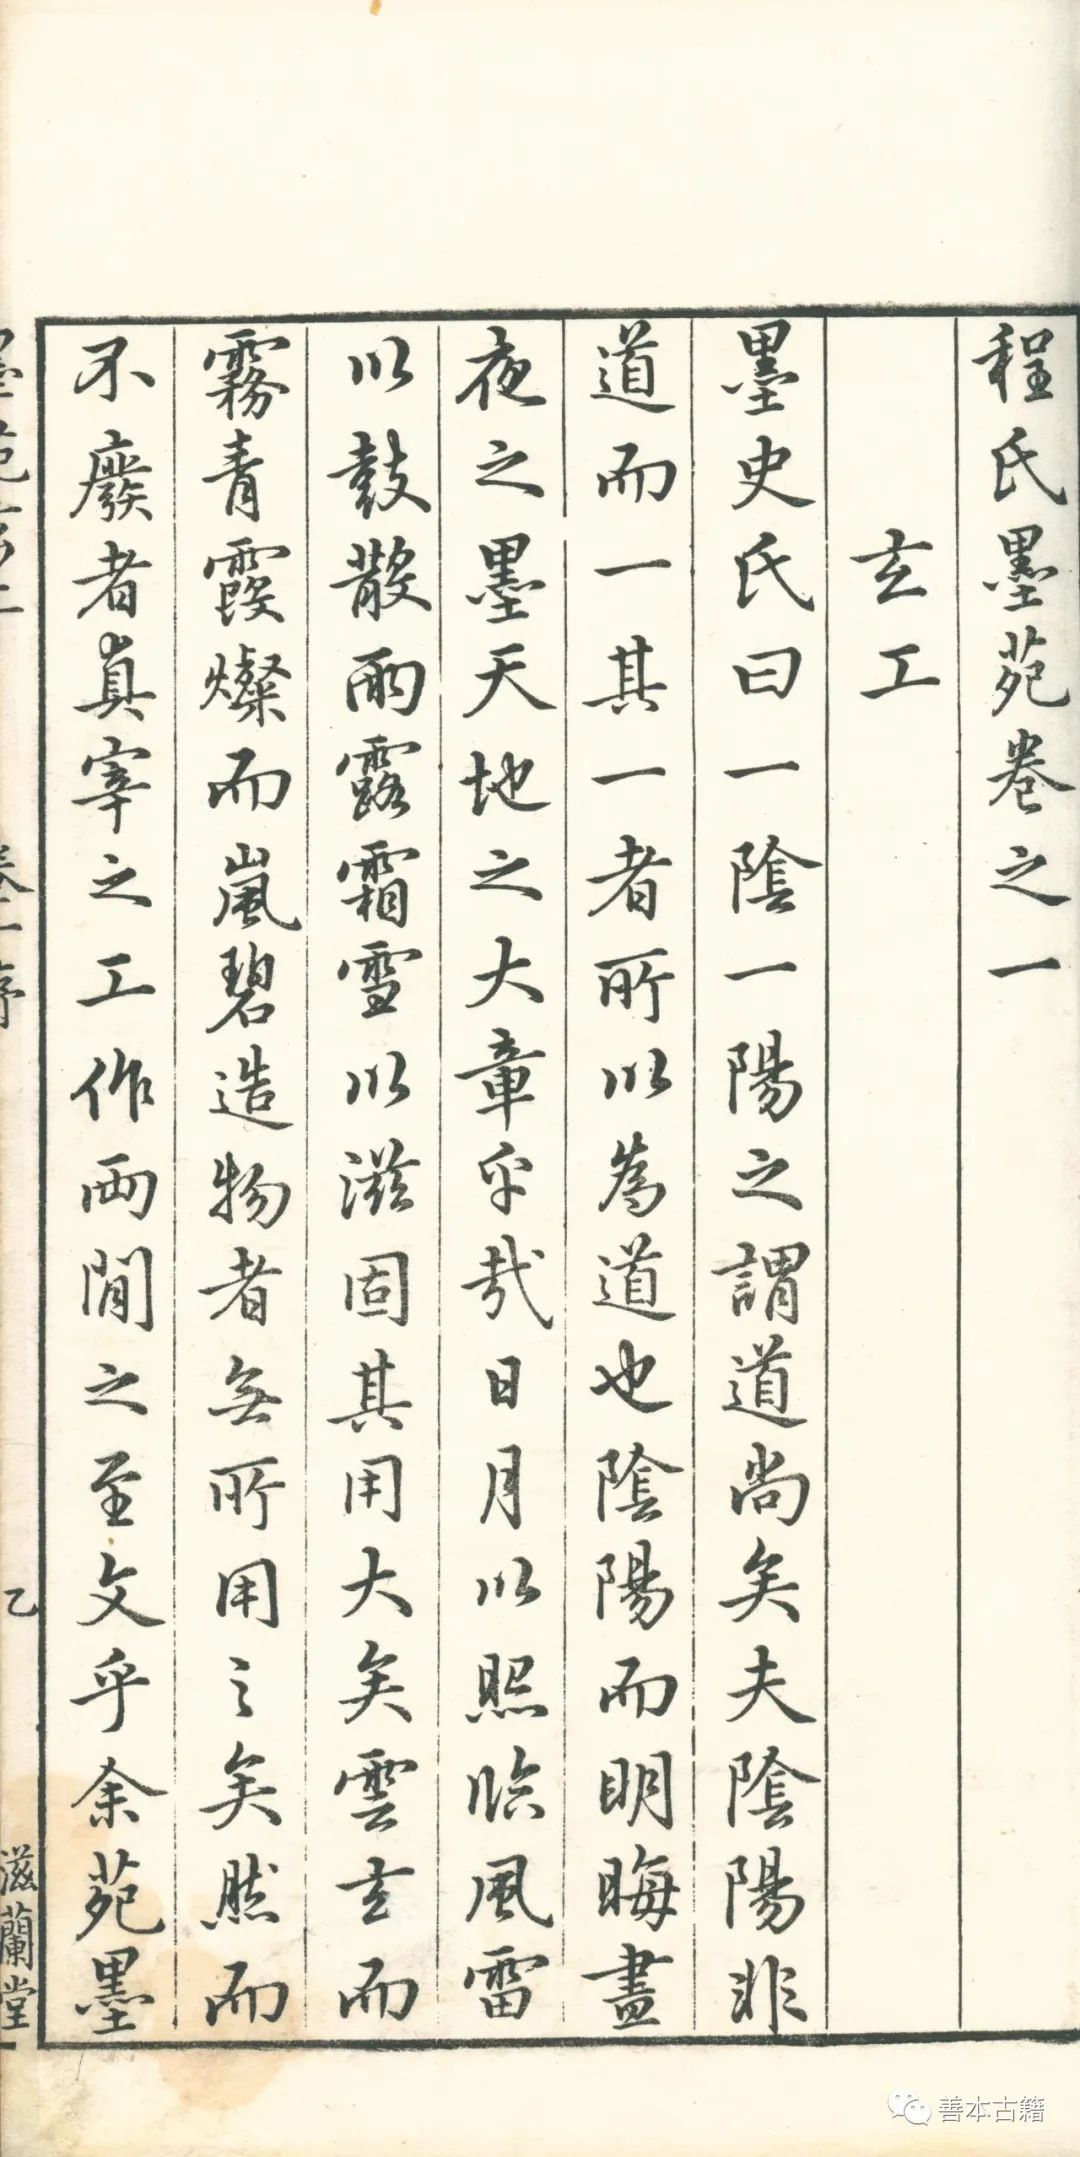 程氏墨苑卷之一
玄工
墨史氏曰一陰一陽之謂道尚矣夫陰陽非
道而一其一者所以為道也陰陽而明晦晝
夜之墨天地之大章乎哉日月以照臨風雷
以鼓散雨露霜雪以滋固其用大矣雲玄而
霧青霞燦而嵐碧造物者無所用之矣然而
不廢者真宰之工作兩間之至文乎余苑墨
卷一序
滋蘭堂
善本古籍